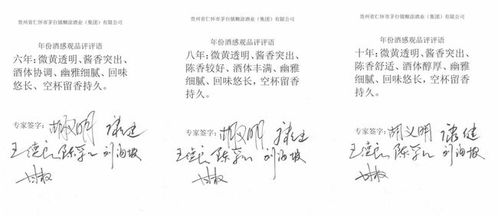 贵州省仁怀市茅台镇糊涂酒业（集团）有限公司
年份酒感观品评评语
六年：微黄透明、酱香突出、
酒体协调、幽雅细腻、回味
悠长、空杯留香持久。
专家签字：胡义明
王德良 陈
贵州省仁怀市茅台镇糊涂酒业（集团）有限公司
年份酒感观品评评语
八年：微黄透明、酱香突出、
陈香较好、酒体丰满、幽雅
细腻、回味悠长，空杯留香
持久。
专家签字：胡义明
王德良 陈
贵州省仁怀市茅台镇糊涂酒业（集团）有限公司
年份酒感观品评评语
十年：微黄透明、酱香突出、
陈香舒适、酒体醇厚、幽雅
细腻、回味悠长、空杯留香
持久。
专家签字：胡义明
王德良 陈